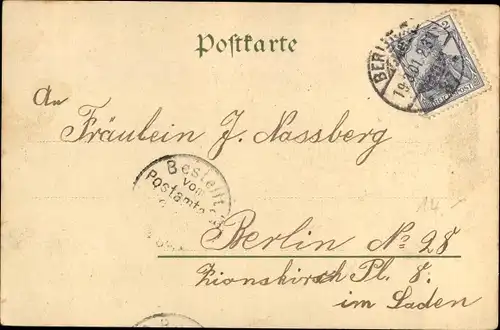 Postkarte
BERLIN
19.1.01
An
Fräulein J. Nassberg
Bestellt
vom
Postamte
14.-
Berlin No 28
Zionskirch Pl. 8.
im Laden